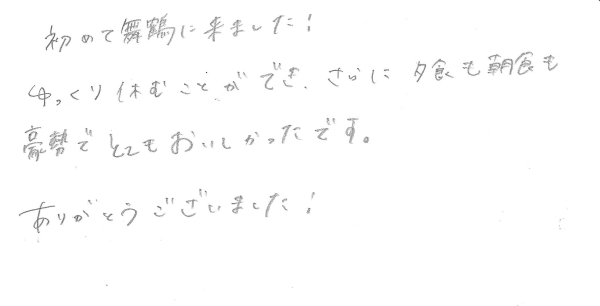 初めて舞鶴に来ました!
ゆっくり休むことができ、さらに夕食も朝食も
豪勢でとてもおいしかったです。
ありがとうございました!